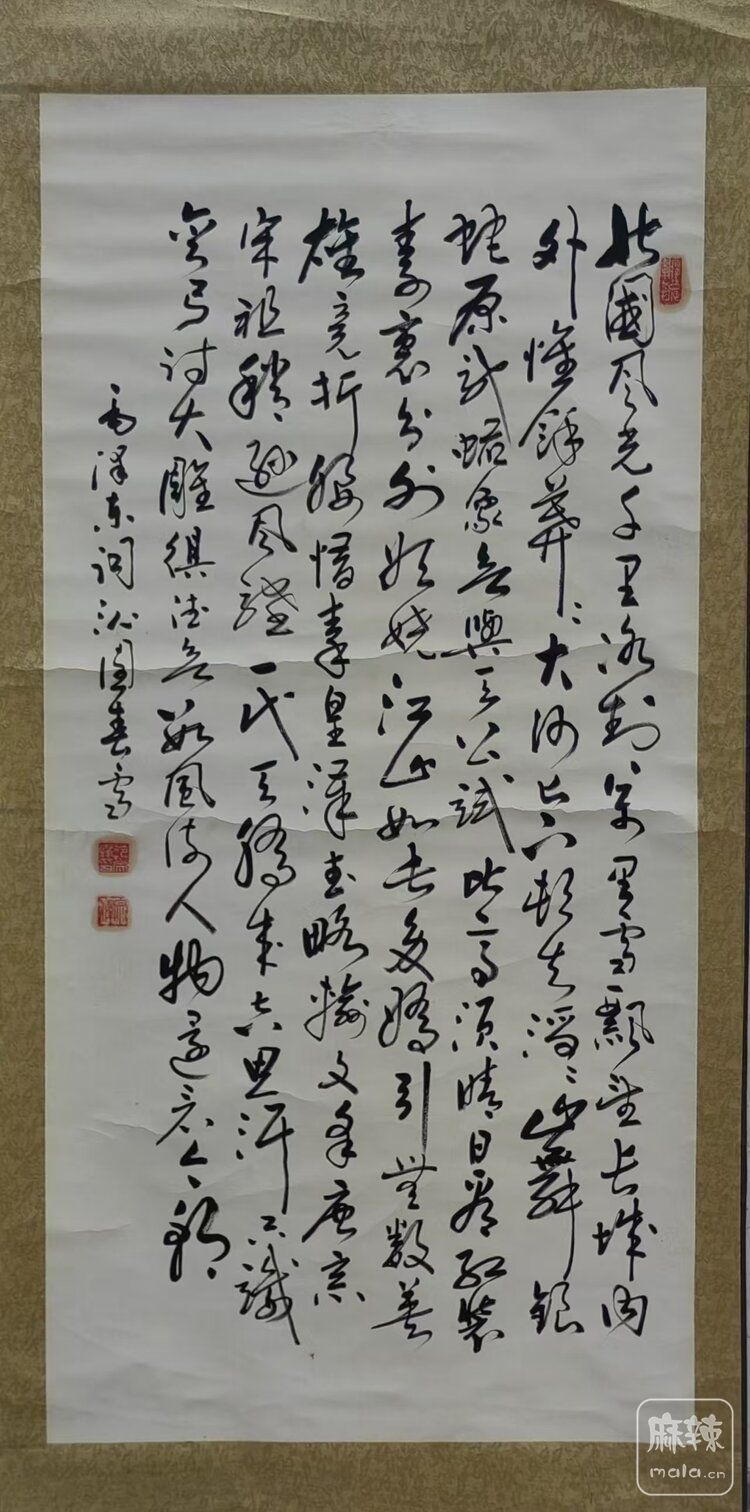 北國风光千里冰封万里雪飄望长城内
外惟餘莽々大河上下顿失滔々山舞银
蛇原驰蜡象欲與天公試比高须晴日看红装
素裹分外妖娆江山如此多嬌引無数英
雄竞折腰惜秦皇漢武略输文采唐宗
宋祖稍逊风骚一代天骄成吉思汗只識
弯弓射大雕俱往矣数風流人物還看今朝
毛泽东词沁園春雪
麻辣
mala.cn